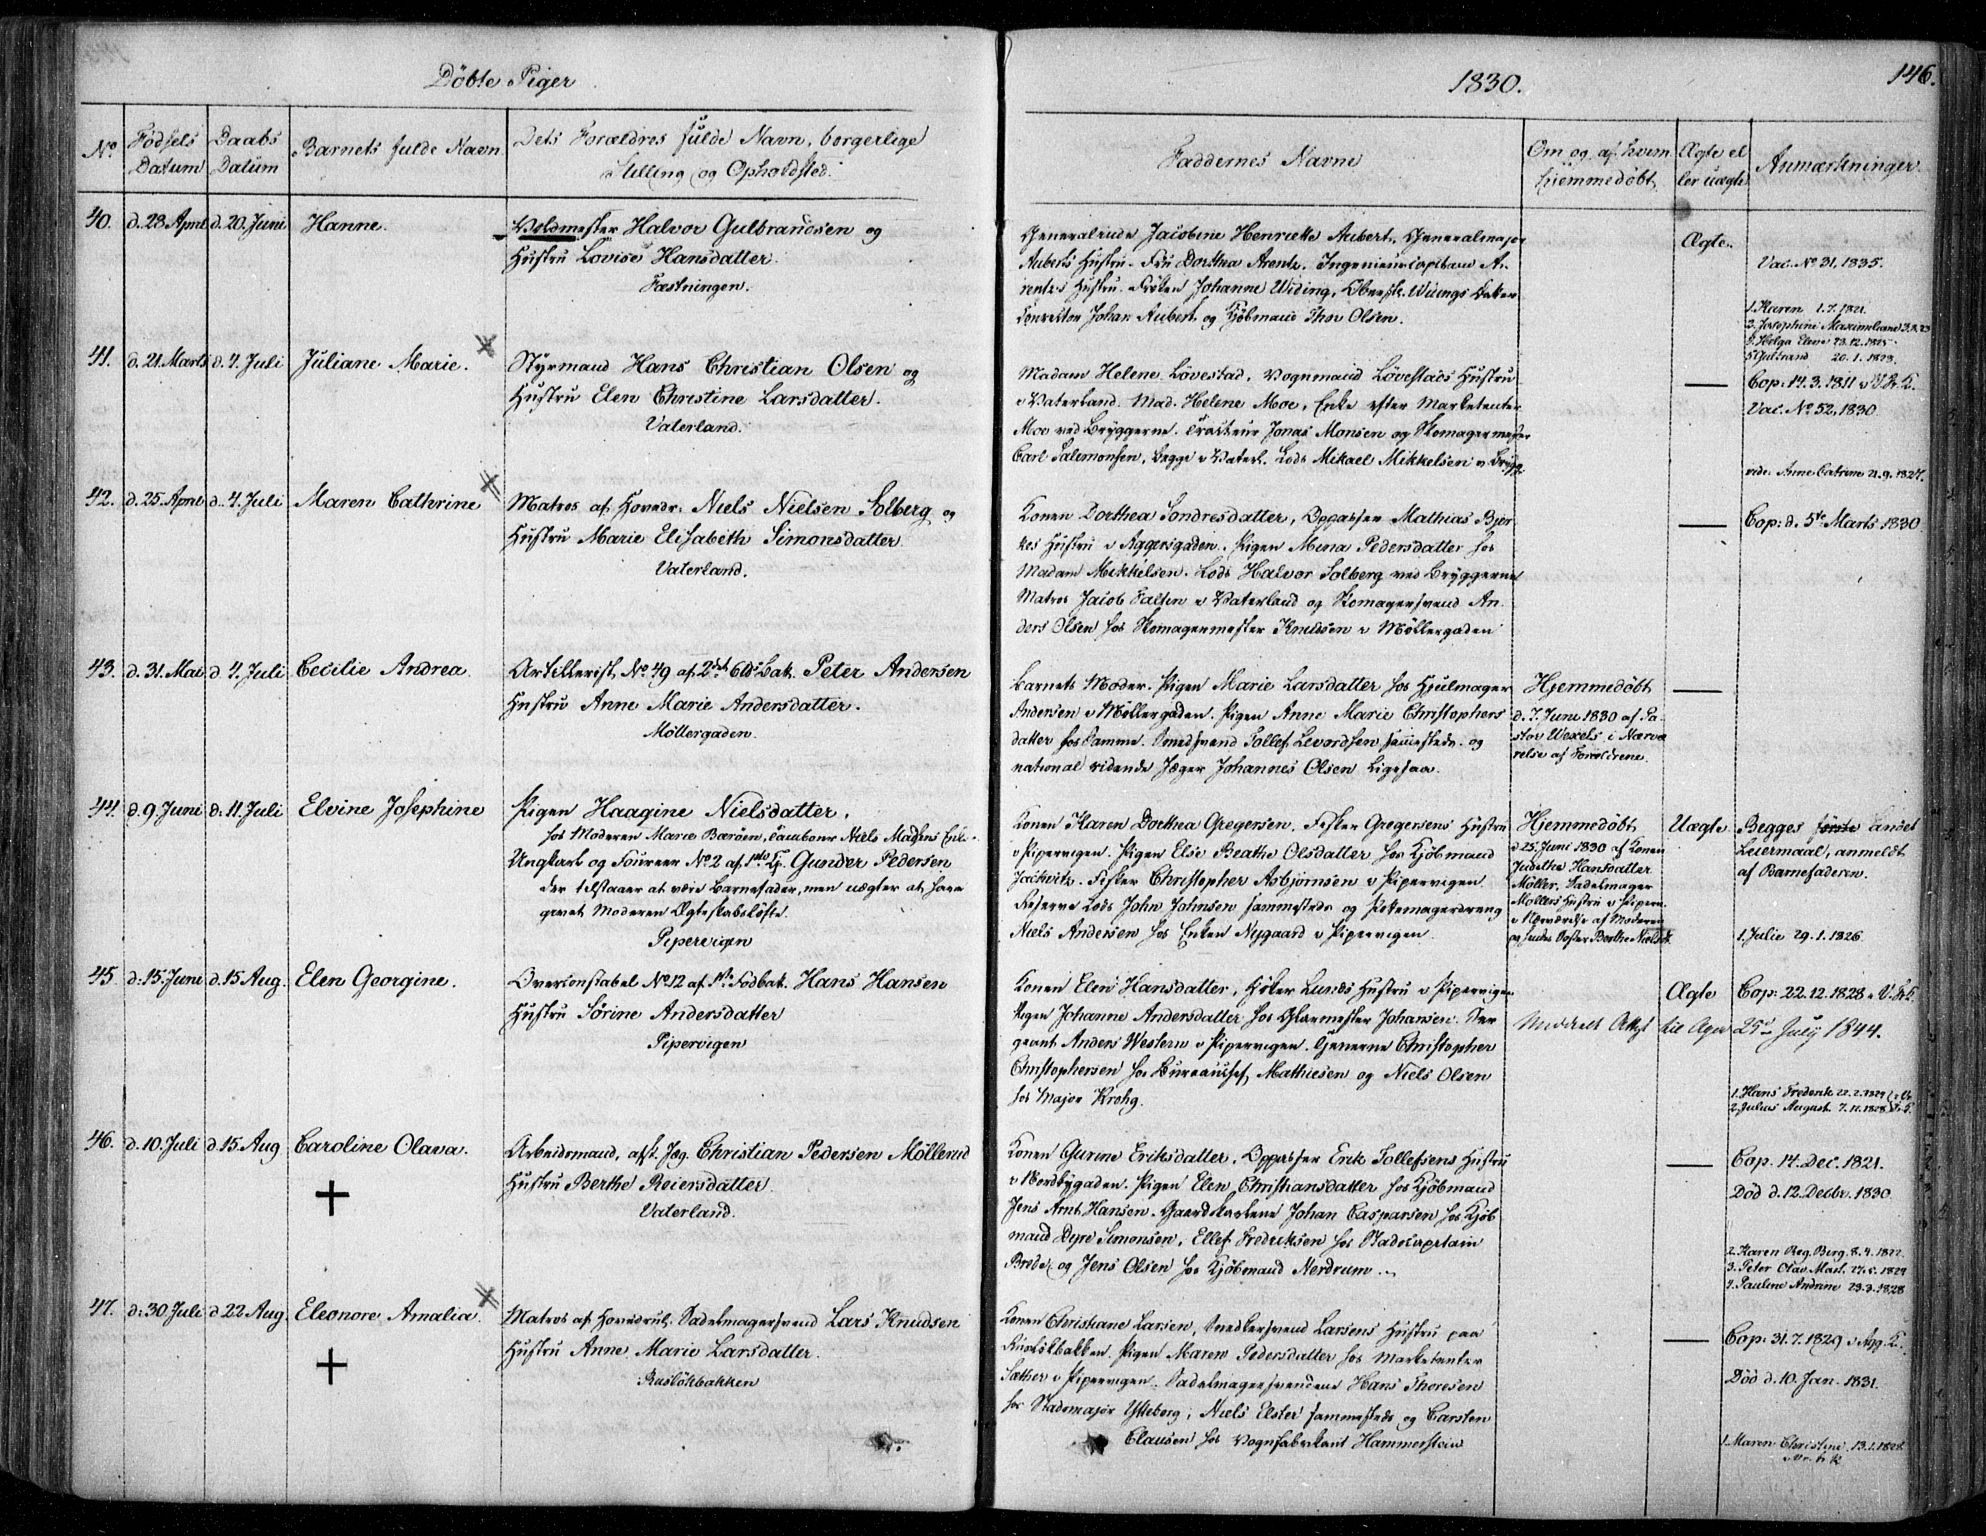 Döbte Piger
1830.
146.
No
Födsels Datum
Daabs Datum
Barnets fulde Navn
Dets Forældres fulde Navn, borgerlige
Stilling og Opholdsted.
Faddernes Navne
Om og af hvem
hiemmedöbt
Ægte el
ler uægte
Anmærkninger.
40. d. 28 April d. 20. Juni Hanne.
Voldmester Halvor Gulbrandsen og
Hustru Lovise Hansdatter.
Fæstningen.
Generalinde Jacobine Henriette Aubert, Generalmajor
Auberts Hustru. Fru Dorthea Arentz, Ingenieurcapitain A-
rentzs Hustru. Frøken Johanne Widing, Oberstl. Widings Datter
Johan Aubert og Kjöbmand Thor Olsen.
Ægte.
Vac. No 31, 1835.
1. Karen 1.7.1821.
3. Josephine Maximiliane
4. Helga Elene 23.12.1825.
5. Gulbrand 20.1.1828.
41. d. 21. Marts d. 4. Juli Juliane Marie.
Styrmand Hans Christian Olsen og
Hustru Elen Christine Larsdatter.
Vaterland.
Madam Helene Lövestad, Vognmand Lövestads Hustru
i Vaterland. Mad. Helene Moe, Enke efter Marketenter
Moe ved Bryggerne. Traiteur Jonas Monsen og Skomagermester
Carl Salomonsen, begge i Vaterl. Lods Mikael Mikkelsen v. Brygg.
—
Cop: 14.3.1811 i V.Fr.K.
Vac. No 52, 1830.
vide. Anne Catrine 21.9.1827.
42. d. 25. April d. 4. Juli Maren Cathrine
Matros af Hovedr. Niels Nielsen Solberg og
Hustru Marie Elisabeth Simonsdatter.
Vaterland.
Konen Dorthea Sondresdatter, Oppasser Mathias Bjer
kes Hustru i Aggersgaden. Pigen Mena Pedersdatter hos
Madam Mikkelsen. Lods Halvor Solberg ved Bryggerne
Matros Jacob Faltin i Vaterland og Skomagersvend An
ders Olsen hos Skomagermester Knudsen i Möllergaden
—
Cop: d. 5te Marts 1830
43. d. 31. Mai d. 4. Juli Cecilie Andrea.
Artillerist No 49 af 2det Bat. Peter Andersen
Hustru Anne Marie Andersdatter.
Möllergaden.
Barnets Moder. Pigen Marie Larsdatter hos Hjulmager
Andersen i Möllergaden. Pigen Anne Marie Christophers
datter hos Samme. Smedsvend Tollef Levordsen sammesteds. og
national ridende Jæger Johannes Olsen Ligesaa.
Hjemmedöbt
d. 7. Juni 1830 af Pa-
stor Wexels i Nærvæ
relse af Forældrene.
—
44. d. 9. Juni d. 11. Juli Elvine Josephine
Pigen Haagine Nielsdatter,
hos Moderen Marie Bæröen, Tambour Niels Madsens Enke.
Ungkarl og Foureer No 2 af 1ste Gunder Pedersen
der tilstaaer at være Barnefader, men nægter at have
givet Moderen Ægteskabslöfte.
Pipervigen
Konen Karen Dorthea Gregersen, Fisker Gregersens Hustru
i Pipervigen. Pigen Else Beathe Olsdatter hos Kjöbmand
Jackwitz. Fisker Christopher Asbjörnsen i Pipervigen.
Reserve Lods John Johnsen sammesteds og Pibemagerdreng
Niels Andersen hos Enken Nygaard i Pipervigen.
Hjemmedöbt
d. 25. Juni 1830 af Konen
Judithe Hansdatter
Möller, Sadelmager
Möllers Hustru i Piperv.
i Nærværelse af Moderen
og hendes Söster Berthe Nielsd.
Uægte
Begges förste andet
Leiermaal, anmeldt
af Barnefaderen.
1. Julie 29.1.1826.
45. d. 15. Juni d. 15 Aug. Elen Georgine.
Overconstabel No 12 af 1ste Fodbat. Hans Hansen
Hustru Sörine Andersdatter
Pipervigen
Konen Elen Hansdatter, Höker Lunds Hustru i Pipervigen
Pigen Johanne Andersdatter hos Glarmester Johansen. Ser
geant Anders Western i Pipervigen. Tjenerne Christopher
Christophersen hos Bureauchef Mathiesen og Niels Olsen
hos Major Krohg.
Ægte
Cop: 22.12.1828 i V.Fr.K.
Meddelt Attest til Ager 25de July 1844.
1. Hans Frederik 22.2.1829
2. Julius August 7.11.1828
46. d. 10. Juli d. 15 Aug Caroline Olava.
Arbeidsmand, afsk. Jæg. Christian Pedersen Möllerud
Hustru Berthe Reiersdatter.
Vaterland.
Konen Gurine Eriksdatter, Oppasser Erik Tollefsens Hustru
i Nordbygaden. Pigen Elen Christiansdatter hos Kjöbmand
Jens Arnt Hansen. Gaardskarlene Johan Caspersen hos Kjöb
mand Dyre Simonsen, Ellef Fredriksen hos Stadscaptain
Breder og Jens Olsen hos Kjöbmand Nerdrum.
—
Cop. 14. Dec. 1821.
Död d. 12. Decbr. 1830
2. Karen Reg. Berg. 8.4.1822.
3. Peter Olav. Mart. 27.5.1824
4. Pauline Andrine 23.3.1828
47. d. 30. Juli d. 22 Aug. Eleonore Amalia.
Matros af Hovedrul. Sadelmagersvend Lars Knudsen
Hustru Anne Marie Larsdatter.
Ruslökbakken
Konen Christiane Larsen, Snedkersvend Larsens Hustru paa
Ruslökbakken. Pigen Maren Pedersdatter hos Marketenter
Sæther i Pipervigen. Sadelmagersvendene Hans Thoresen
hos Stadsmajor Ytteborg, Niels Elster sammesteds og Carsten
Clausen hos Vognfabrikant Hammerstein
—
Cop: 31.7.1829 i Agg.K.
Död d. 10. Jan. 1831.
1. Maren Christine 13.1.1828